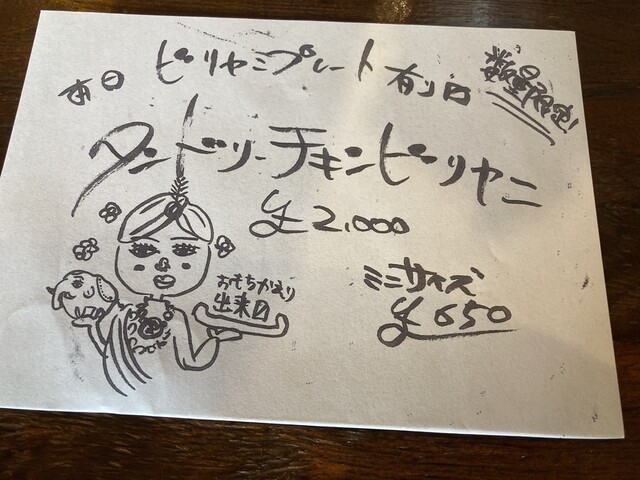 本日 ビリヤニプレート 有り〼
数量限定!
タンドリーチキンビリヤニ
¥2,000
おもちかえり
出来〼
ミニサイズ
¥650